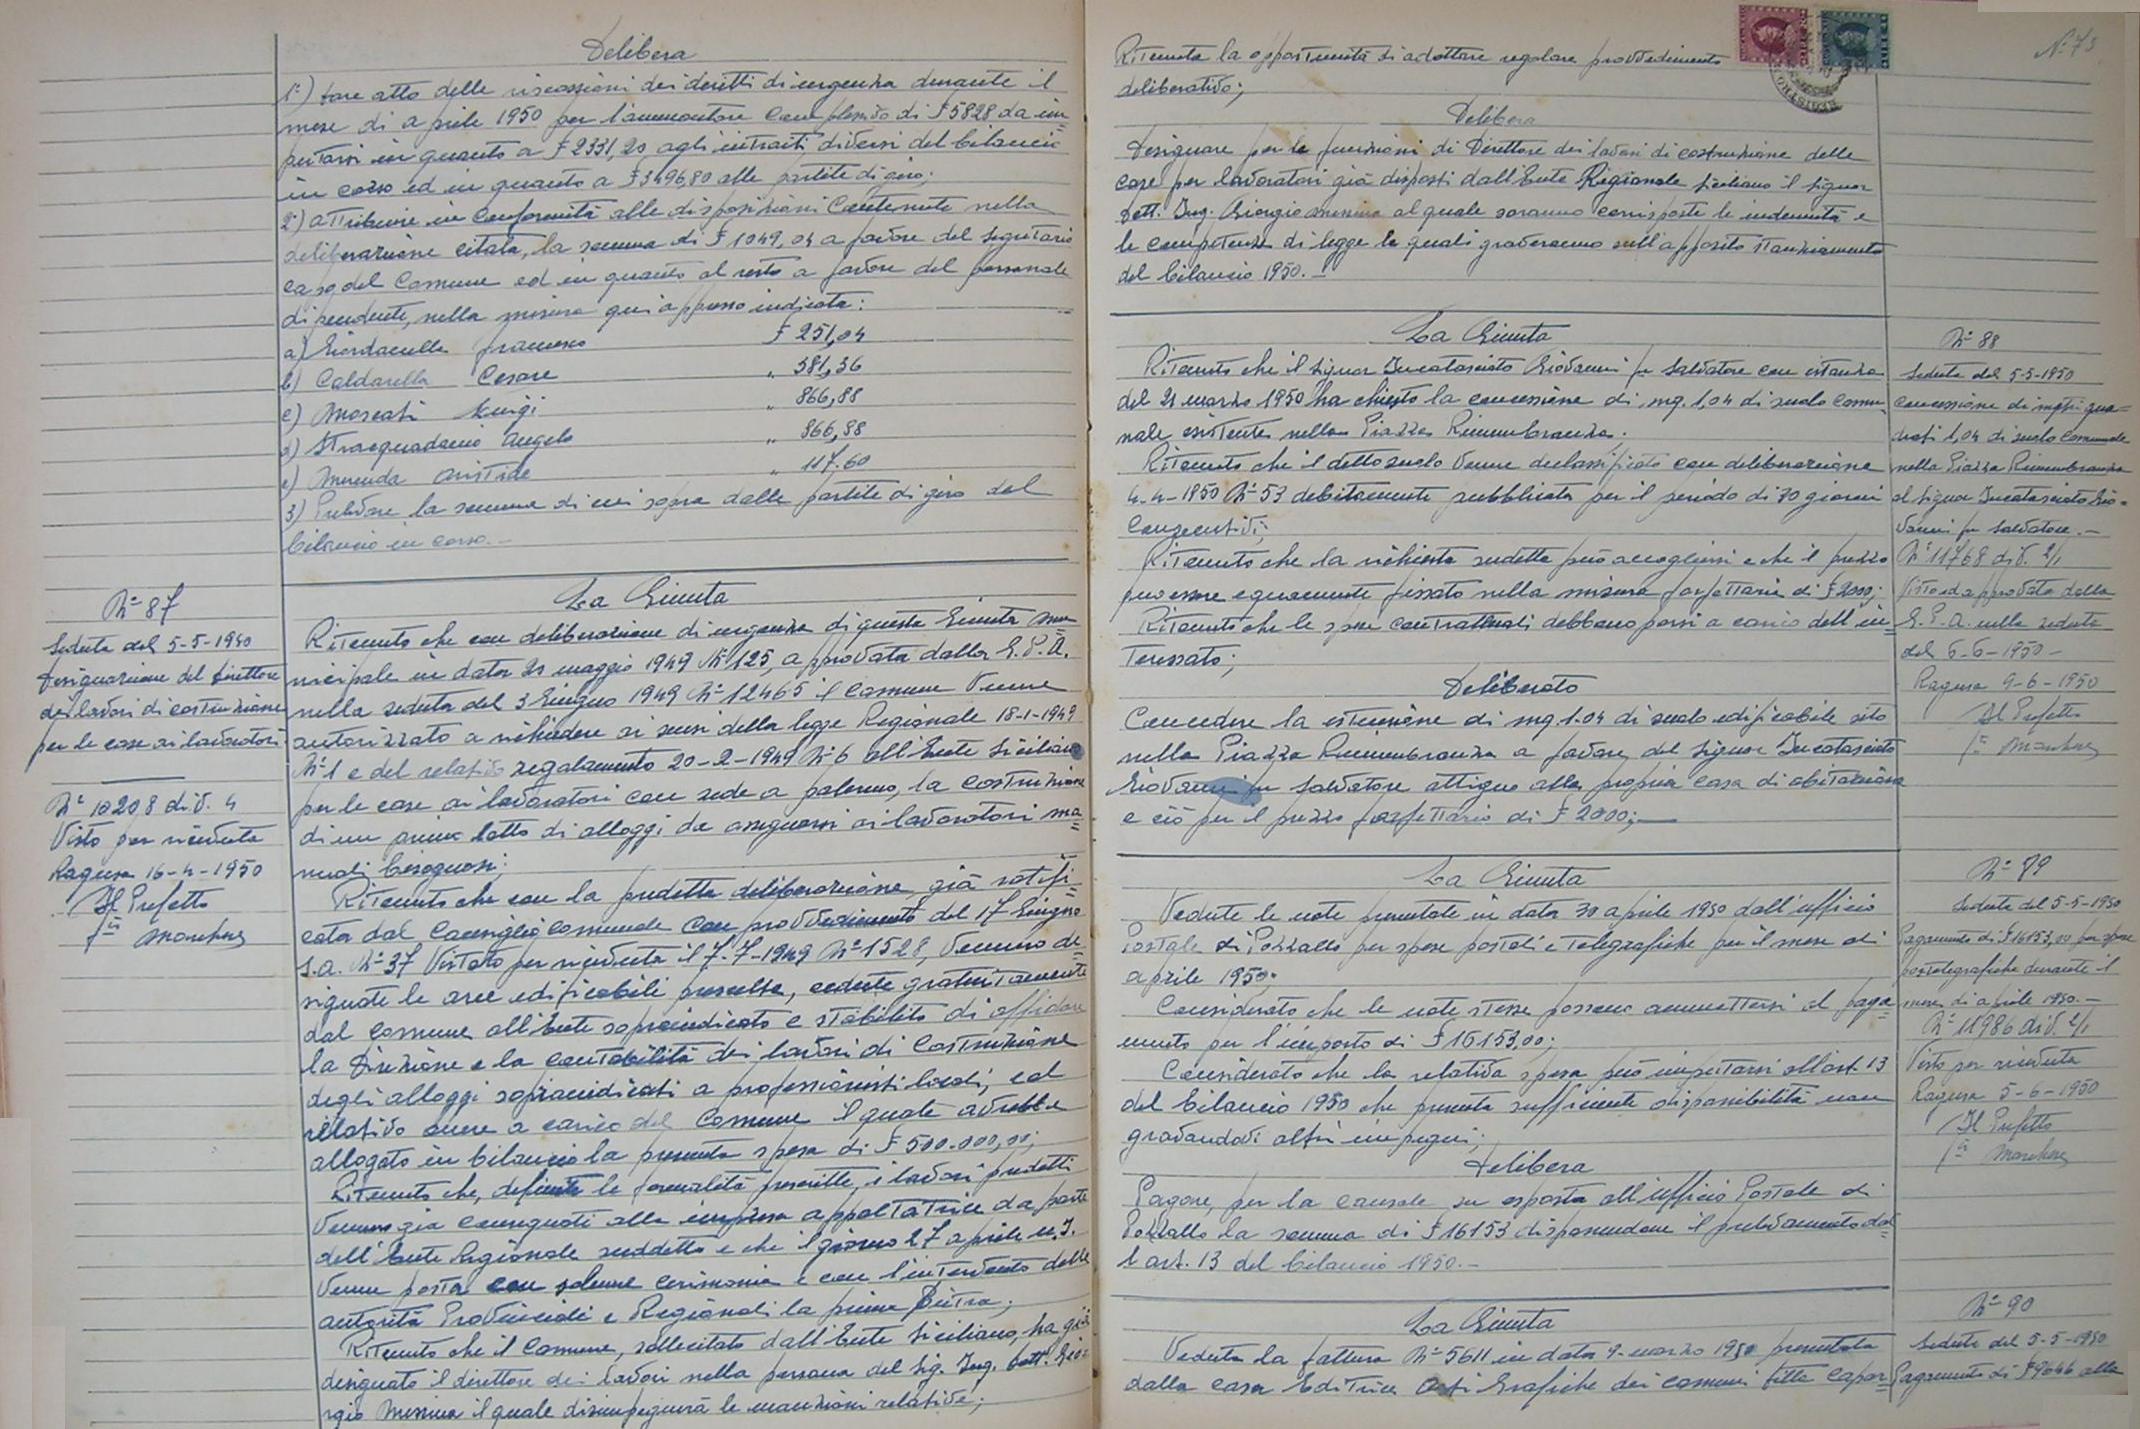 Delibera
1°) fare atto delle riscossioni dei diritti di urgenza durante il
mese di aprile 1950 per l'ammontare complessivo di £ 5828 da im=
putarsi in quanto a £ 2331,20 agli introiti diversi del bilancio
in corso ed in quanto a £ 3496,80 alle partite di giro;
2°) attribuire in conformità alle disposizioni contenute nella
deliberazione citata, la somma di £ 1049,04 a favore del Segretario
capo del Comune ed in quanto al resto a favore del personale
dipendente, nella misura qui appresso indicata:
a) Giordanella Francesco £ 251,04
b) Caldarella Cesare " 381,36
c) Moscati Luigi " 866,88
d) Stracquadanio Angelo " 866,88
e) Aristide " 117.60
3) Prelevare la somma di cui sopra dalle partite di giro del
bilancio in corso.-
N° 87
Seduta del 5-5-1950
Designazione del Direttore
dei lavori di costruzione
per le case ai lavoratori
N° 10208 div. 4
Visto per ricevuta
Ragusa 16-4-1950
Il Prefetto
La Giunta
Ritenuto che con deliberazione di urgenza di questa Giunta mu=
nicipale in data 20 maggio 1949 N° 125, approvata dalla G.P.A.
nella seduta del 3 Giugno 1949 N° 12465 il Comune venne
autorizzato a richiedere ai sensi della legge Regionale 18-1-1949
N° 1 e del relativo regolamento 20-2-1949 N° 6 all'Ente Siciliano
per le case ai lavoratori con sede a Palermo, la costruzione
di un primo lotto di alloggi da assegnarsi ai lavoratori ma=
nuali bisognosi;
Ritenuto che con la predetta deliberazione già ratifi=
cata dal Consiglio Comunale con provvedimento del 17 Giugno
s.a. N° 37 vistato per ricevuta il 7-7-1949 N° 1528, vennero de=
signate le aree edificabili prescelte, cedute gratuitamente
dal Comune all'Ente sopraindicato e stabilito di affidare
la Direzione e la contabilità dei lavori di costruzione
degli alloggi sopraindicati a professionisti locali, ed
relativo onere a carico del Comune il quale avrebbe
allogato in bilancio la presunta spesa di £ 500.000,00;
Ritenuto che, definite le formalità prescritte, i lavori predetti
vennero già consegnati alla impresa appaltatrice da parte
dell'Ente Regionale suddetto e che il giorno 27 aprile u.s.
venne posta con solenne cerimonia e con l'intervento delle
autorità Provinciali e Regionali la prima Pietra;
Ritenuto che il Comune, sollecitato dall'Ente Siciliano, ha già
designato il direttore dei lavori nella persona del Sig. Ing. Dott. Gior=
gio Messina il quale disimpegnerà le mansioni relative;
Ritenuta la opportunità di adottare regolare provvedimento
deliberativo;
Delibera
Designare per le funzioni di Direttore dei lavori di costruzione delle
case per lavoratori già disposti dall'Ente Regionale Siciliano il Signor
Dott. Ing. Giorgio Messina al quale saranno corrisposte le indennità e
le competenze di legge le quali graveranno sull'apposito stanziamento
del bilancio 1950.-
La Giunta
Ritenuto che il Signor Incatasciato Giovanni fu Salvatore con istanza
del 21 marzo 1950 ha chiesto la concessione di mq. 1,04 di suolo comu=
nale esistente nella Piazza Rimembranza;
Ritenuto che il detto suolo venne declassificato con deliberazione
4-4-1950 N° 53 debitamente pubblicata per il periodo di 30 giorni
consecutivi;
Ritenuto che la richiesta suddetta può accogliersi e che il prezzo
può essere equamente fissato nella misura forfettaria di £ 2000;
Ritenuto che le spese contrattuali debbano porsi a carico dell'in=
teressato;
Deliberato
Concedere la estensione di mq. 1.04 di suolo edificabile sito
nella Piazza Rimembranza a favore del Signor Incatasciato
Giovanni fu Salvatore attiguo alla propria casa di abitazione
e ciò per il prezzo forfettario di £ 2000;-
N° 88
Seduta del 5-5-1950
Concessione di metri qua=
drati 1,04 di suolo comunale
nella Piazza Rimembranza
al Signor Incatasciato Gio=
vanni fu Salvatore.-
N° 11768 div. 2/1
Vista ed approvata dalla
G.P.A. nella seduta
del 6-6-1950-
Ragusa 9-6-1950
Il Prefetto
La Giunta
Vedute le note presentate in data 30 aprile 1950 dall'ufficio
Postale di Pozzallo per spese postali e telegrafiche per il mese di
aprile 1950;
Considerato che le note stesse possono ammettersi al paga=
mento per l'importo di £ 16153,00;
Considerato che la relativa spesa può imputarsi all'art. 13
del bilancio 1950 che presenta sufficiente disponibilità non
gravandovi altri impegni;
Delibera
Pagare, per la causale su esposta all'ufficio Postale di
Pozzallo la somma di £ 16153 disponendone il prelevamento dal=
l'art. 13 del bilancio 1950.-
N° 89
Seduta del 5-5-1950
Pagamento di £ 16153,00 per spese
postelegrafiche durante il
mese di aprile 1950.-
N° 11986 div. 2/1
Visto per ricevuta
Ragusa 5-6-1950
Il Prefetto
La Giunta
Veduta la fattura N° 5611 in data 9 marzo 1950 presentata
dalla casa Editrice Arti Grafiche dei comuni Ditta Capar=
N° 90
Seduta del 5-5-1950
Pagamento di £ 9646 alla